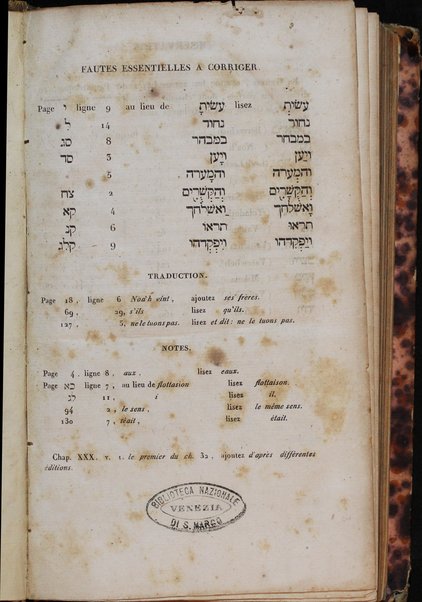 FAUTES ESSENTIELLES A CORRIGER.
Page י ligne 9 au lieu de עָשִׂיתָ lisez עָשִׂיתָ
ל 14 נחוד נחור
סג 8 במבהר במבחר
סד 3 וַיָּען וַיַּען
5 והמערה והמערה
צח 2 וְהַקְּשֻׁרִים וְהַקְּשֻׁרִים
קא 4 וָאשלחך וָאשלחך
קנ 6 תראו תראו
קלג 9 וַיפקדהו וַיפקדהו
TRADUCTION.
Page 18, ligne 6 Noa'h vint, ajoutez ses frères.
69, 29, s'ils lisez qu'ils.
127, 5, ne le tuons pas. lisez et dit: ne le tuons pas.
NOTES.
Page 4. ligne 8, aux. lisez eaux.
Page כא ligne 7, au lieu de flottasion lisez flottaison.
לג 11, i lisez il.
94 2, le sens, lisez le même sens.
130 7, teait, lisez était.
Chap. XXX. v. 1. le premier du ch. 32, ajoutez d'après différentes
éditions.
BIBLIOTECA NAZIONALE
VENEZIA
DI S. MARCO